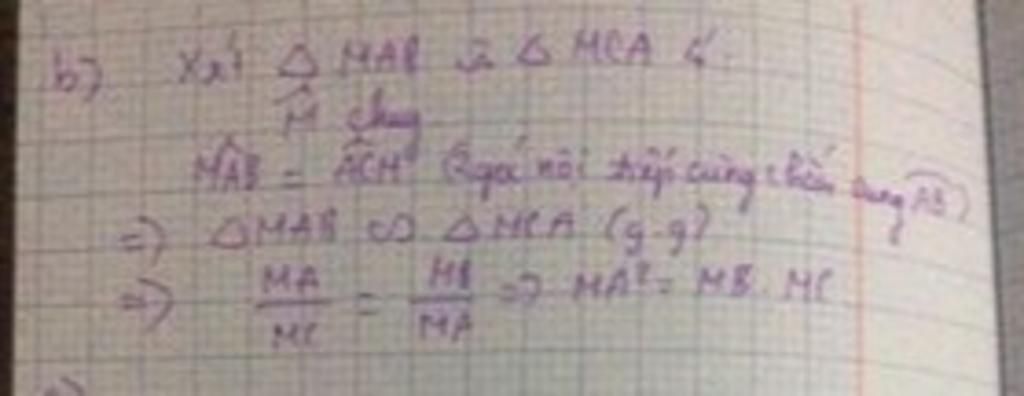 b) Xét △ MAB và △ MCA có:
M̂ chung
MÂB = AĈM (2 góc nội tiếp cùng chắn cung AB)
=> △MAB ∽ △MCA (g.g)
=> MA/MC = MB/MA => MA² = MB. MC